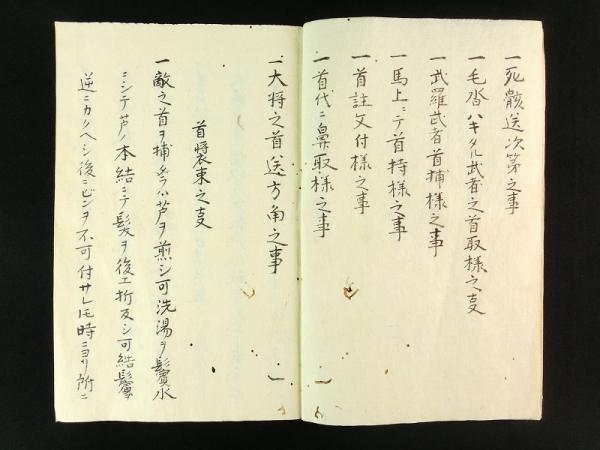 一死骸送次第之事
一毛沓ハキタル武者之首取様之事
一武羅武者首捕様之事
一馬上ニテ首持様之事
一首註文付様之事
一首代ニ鼻取様之事
一大将之首送方角之事
首装束之事
一敵之首ヲ捕ハ芦ヲ煎シ可洗湯ヲ鬢水
ニシテ芦ノ本結ニテ髪ヲ後エ折反シ可結鬢
逆ニカクヘシ後ニビンヲ不可付サレ𪜈時ニヨリ所ニ